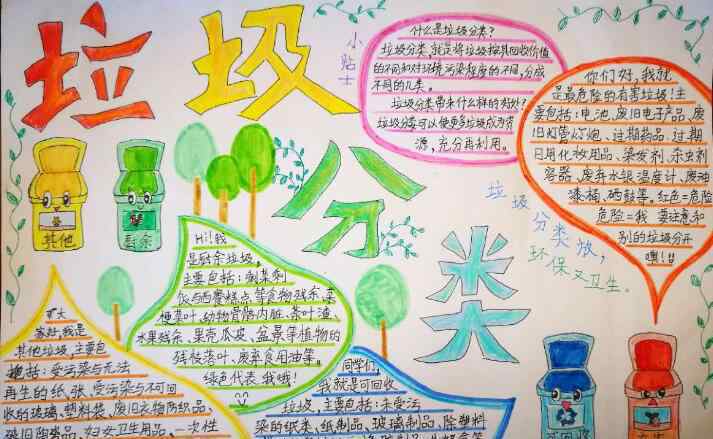 垃圾
分
类
小贴士
什么是垃圾分类?
垃圾分类,就是将垃圾按其回收价值
的不同和对环境污染程度的不同,分成
不同的几类。
垃圾分类带来什么样的利好?
垃圾分类可以使更多垃圾成为资
源,充分再利用。
你们好,我就
是最危险的有害垃圾!主
要包括:电池、废旧电子产品、废
旧灯管灯炮、过期药品、过期
日用化妆用品、染发剂、杀虫剂
容器、废弃水银温度计、废油
漆桶、硒鼓等。红色=危险
危险=我 要注意和
别的垃圾分开
噢!!!
其他
厨余
Hi!我
是厨余垃圾,
主要包括:剩菜剩
饭与西餐糕点等食物残余、菜
梗菜叶、动物骨骼内脏、茶叶渣、
水果残余、果壳瓜皮、盆景等植物的
残枝落叶、废弃食用油等。
绿色代表我哦!
垃圾
分类做,
环保又卫生。
大
家好,我是
其他垃圾,主要包
括:受污染与无法
再生的纸张、受污染与不可回
收的玻璃、塑料袋、废旧衣物纺织品、
破旧陶瓷品、妇女卫生用品、一次性
同学们,
我就是可回收
垃圾,主要包括:未受污
染的纸类、纸制品、玻璃制品、除塑料